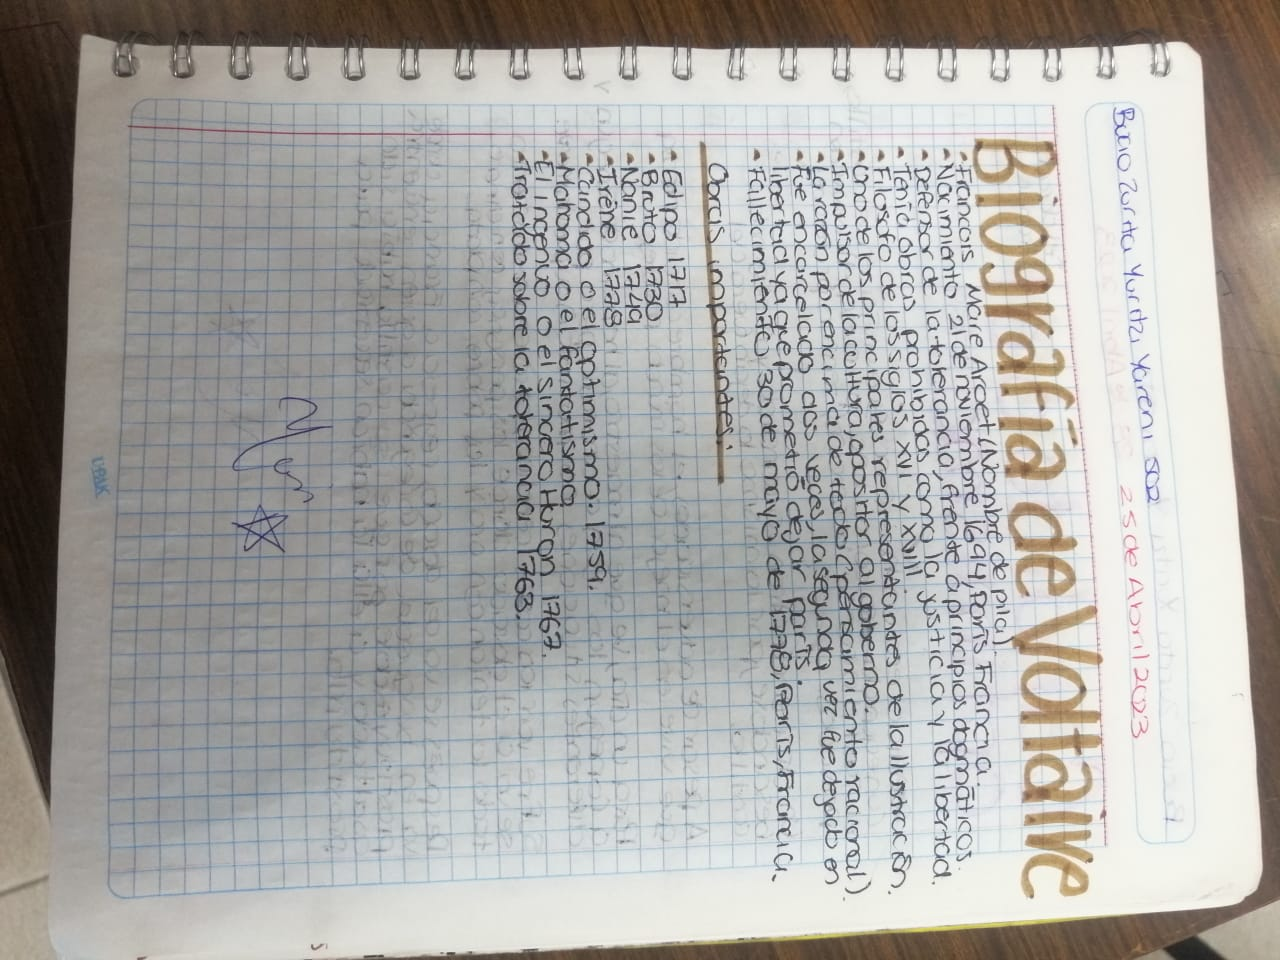 Bucio Zurita Yuritzi Yaireni 502
25 de Abril 2023
Biografía de Voltaire
- Francois Marie Arocet (Nombre de pila)
- Nacimiento 21 de noviembre 1694, París Francia.
- Defensor de la tolerancia, frente a principios dogmáticos.
- Tenía obras prohibidas como la justicia y la libertad.
- Filosofo de los siglos XVII y XVIII
- Uno de los principales representantes de la Ilustración.
- Impulsor de la cultura, opositor al gobierno.
- La razón por encima de todo (pensamiento racional).
- Fue encarcelado dos veces, la segunda vez fue dejado en
libertad ya que prometió dejar París.
- Fallecimiento 30 de mayo de 1778, París, Francia.
Obras importantes:
- Edipo 1717
- Bruto 1730
- Nanie 1749
- Irène 1778
- Candido o el optimismo. 1759.
- Mahoma o el fantatismo
- El ingenuo o el sincero Huron 1767.
- Tratado sobre la tolerancia 1763.